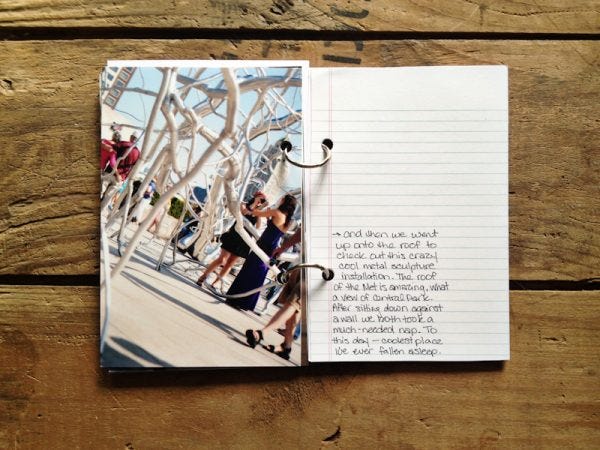 → and then we went
up onto the roof to
check out this crazy
cool metal sculpture
installation. The roof
of the Met is amazing, what
a view of Central Park.
After sitting down against
a wall we both took a
much-needed nap. To
this day — coolest place
I've ever fallen asleep.